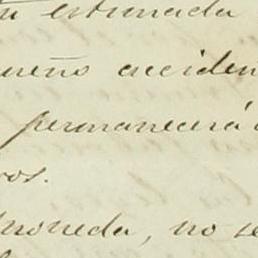 estimada
ueño acciden
permanecerá
ros.
moneda, no se